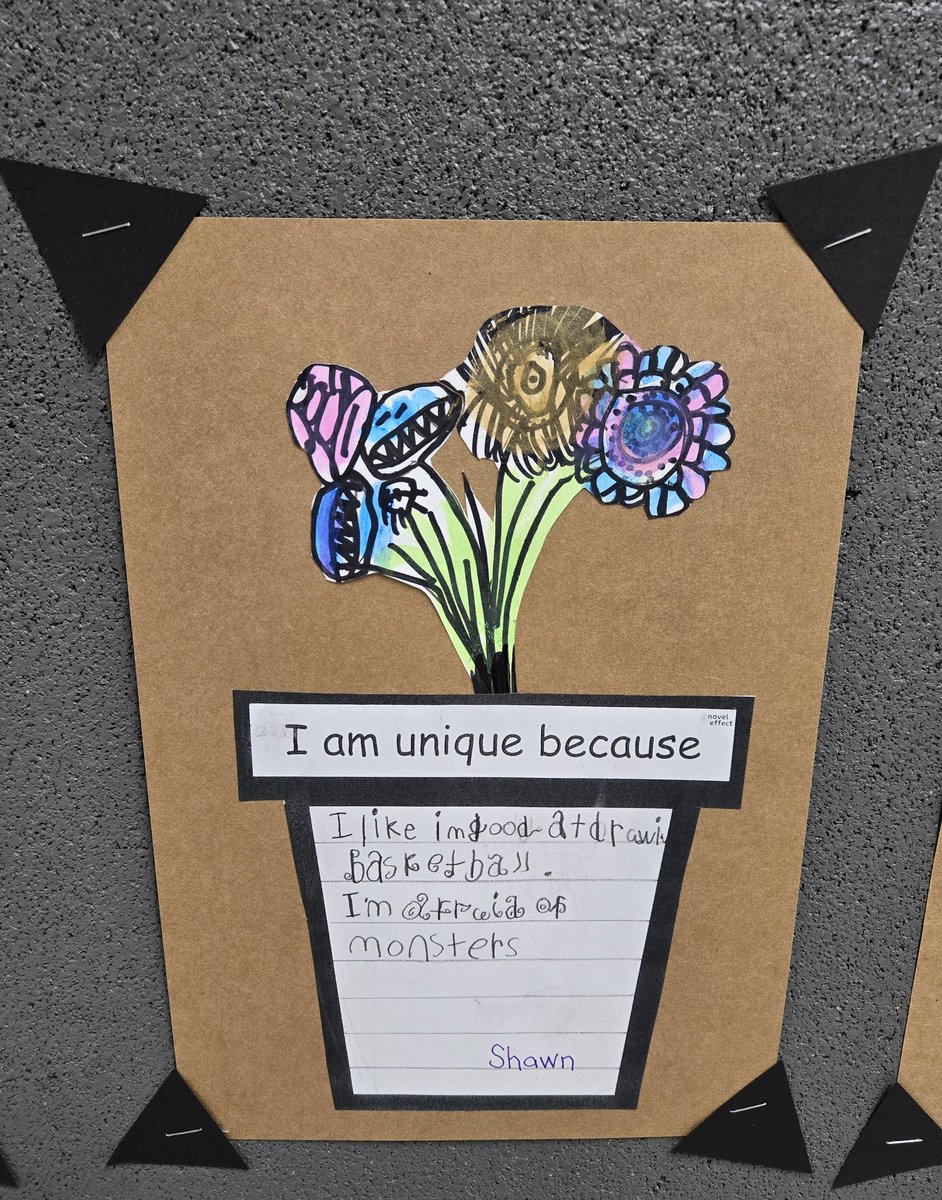 novel
effect
I am unique because
I like im good at drawi
basketball.
I'm afraid of
monsters
Shawn